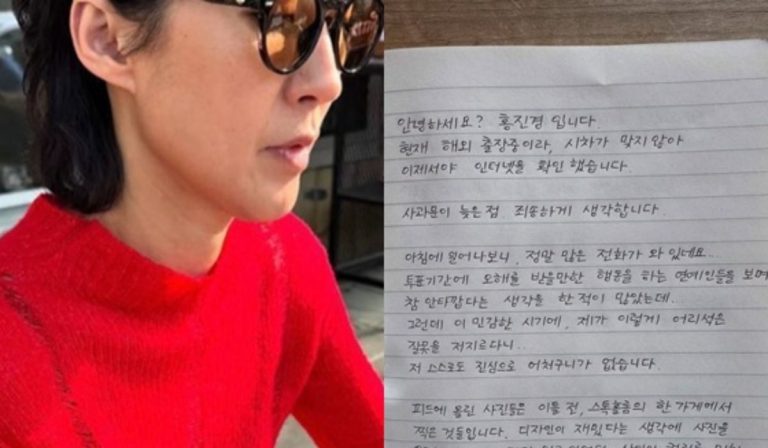 안녕하세요? 홍진경 입니다.
현재 해외 출장중이라, 시차가 맞지 않아
이제서야 인터넷을 확인 했습니다.
사과문이 늦은점 죄송하게 생각합니다.
아침에 일어나보니, 정말 많은 전화가 와 있네요...
투표기간에 오해를 받을만한 행동을 하는 연예인들을 보며
참 안타깝다는 생각을 한 적이 많았는데..
그런데 이 민감한 시기에, 제가 이렇게 어리석은
잘못을 저지르다니..
저 스스로도 진심으로 어처구니가 없습니다.
피드에 올린 사진들은 이틀 전, 스톡홀름의 한 가게에서
찍은 것들입니다. 디자인이 재밌다는 생각에 사진을